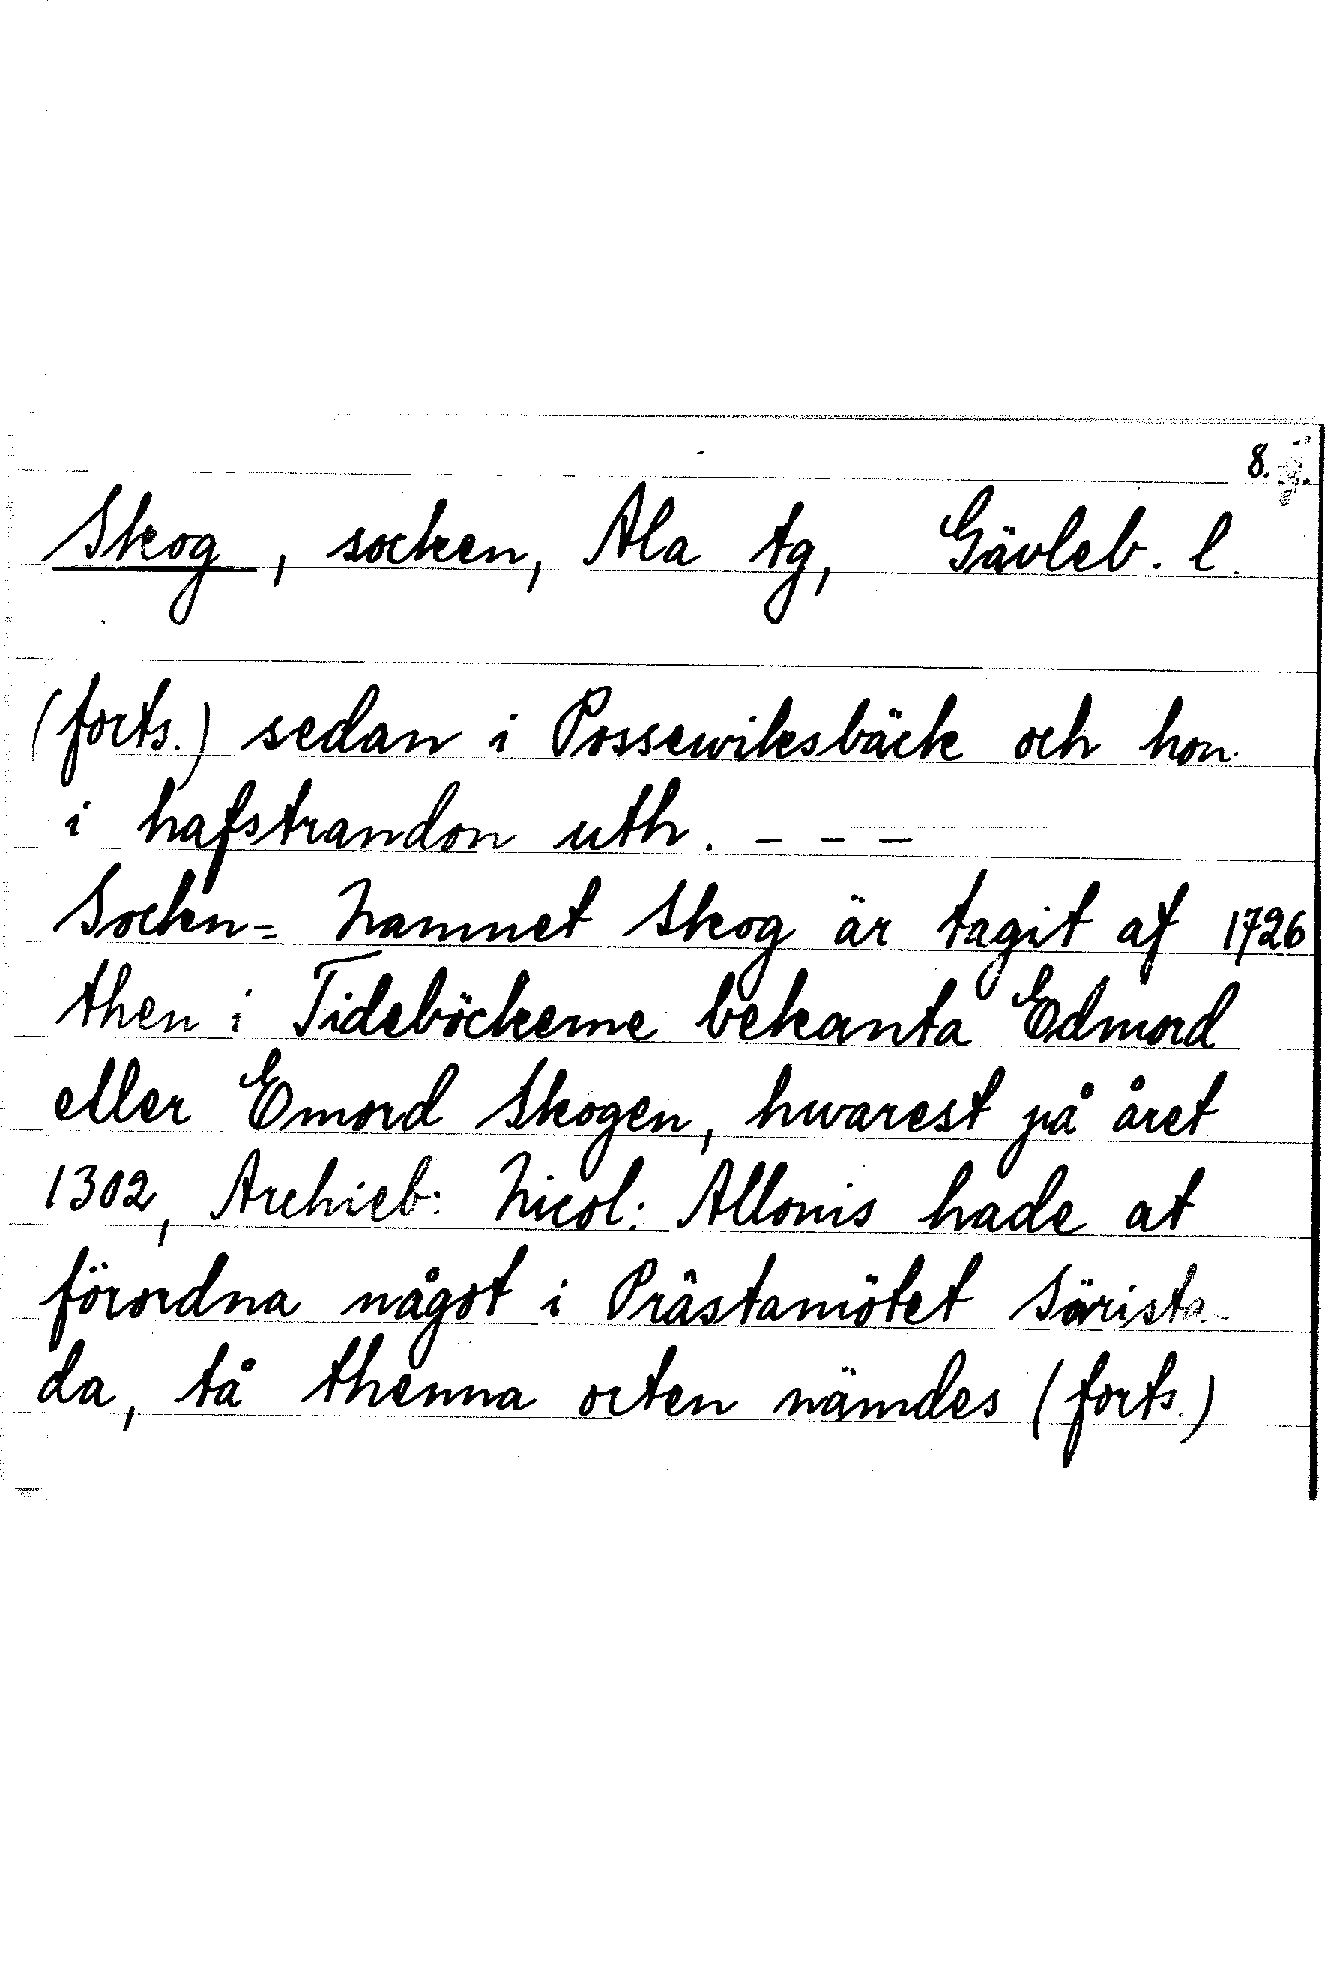 8.
Skog, socken, Ala tg, Gävleb. l.
(forts.) sedan i Possewiksbäck och hon
i hafstrandon uth. - - -
Sockn= Namnet Skog är tagit af 1726
then i Tideböckerne bekanta Edmord
eller Emord Skogen, hwarest på året
1302, Archieb: Nicol: Allonis hade at
förordna något i Prästamötet Särista
da, tå thenna orten nämdes (forts.)